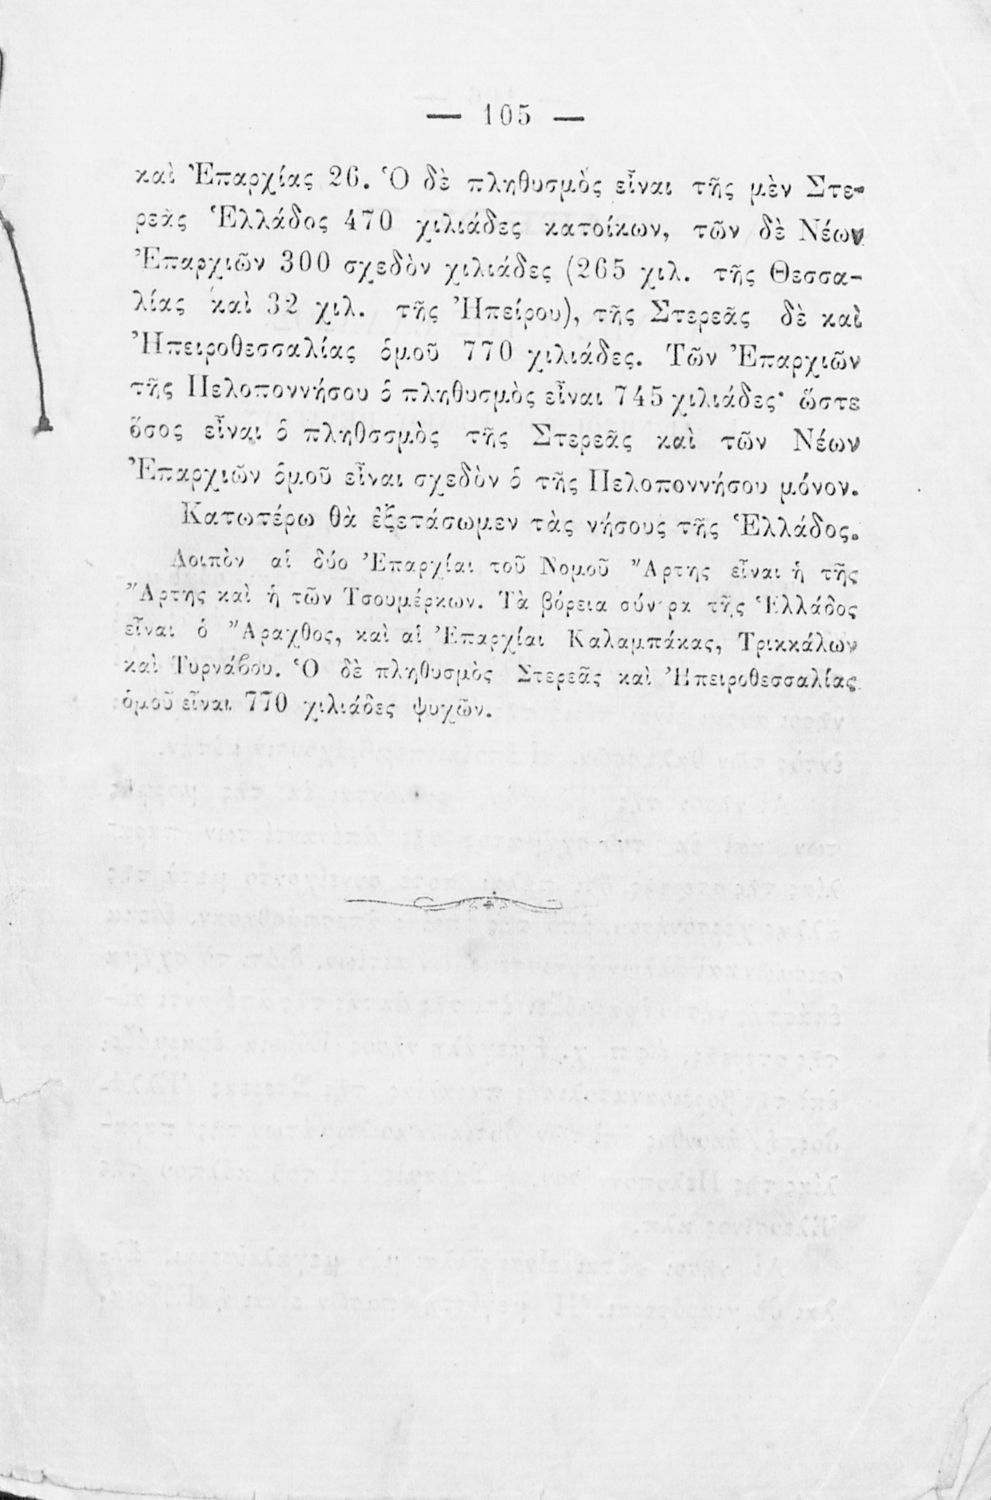 — 105 —
καὶ Ἐπαρχίας 26. Ὁ δὲ πληθυσμὸς εἶναι τῆς μὲν Στε-
ρεᾶς Ἑλλάδος 470 χιλιάδες κατοίκων, τῶν δὲ Νέων
Ἐπαρχιῶν 300 σχεδὸν χιλιάδες (265 χιλ. τῆς Θεσσα-
λίας καὶ 32 χιλ. τῆς Ἠπείρου), τῆς Στερεᾶς δὲ καὶ
Ἠπειροθεσσαλίας ὁμοῦ 770 χιλιάδες. Τῶν Ἐπαρχιῶν
τῆς Πελοποννήσου ὁ πληθυσμὸς εἶναι 745 χιλιάδες· ὥστε
ὅσος εἶναι ὁ πληθσσμὸς τῆς Στερεᾶς καὶ τῶν Νέων
Ἐπαρχιῶν ὁμοῦ εἶναι σχεδὸν ὁ τῆς Πελοποννήσου μόνον.
Κατωτέρω θὰ ἐξετάσωμεν τὰς νήσους τῆς Ἑλλάδος.
Λοιπὸν αἱ δύο Ἐπαρχίαι τοῦ Νομοῦ Ἄρτης εἶναι ἡ τῆς
Ἄρτης καὶ ἡ τῶν Τσουμέρκων. Τὰ βόρεια σύν ρα τῆς Ἑλλάδος
εἶναι ὁ Ἄραχθος, καὶ αἱ Ἐπαρχίαι Καλαμπάκας, Τρικκάλων
καὶ Τυρνάβου. Ὁ δὲ πληθυσμὸς Στερεᾶς καὶ Ἠπειροθεσσαλίας
ὁμοῦ εἶναι 770 χιλιάδες ψυχῶν.